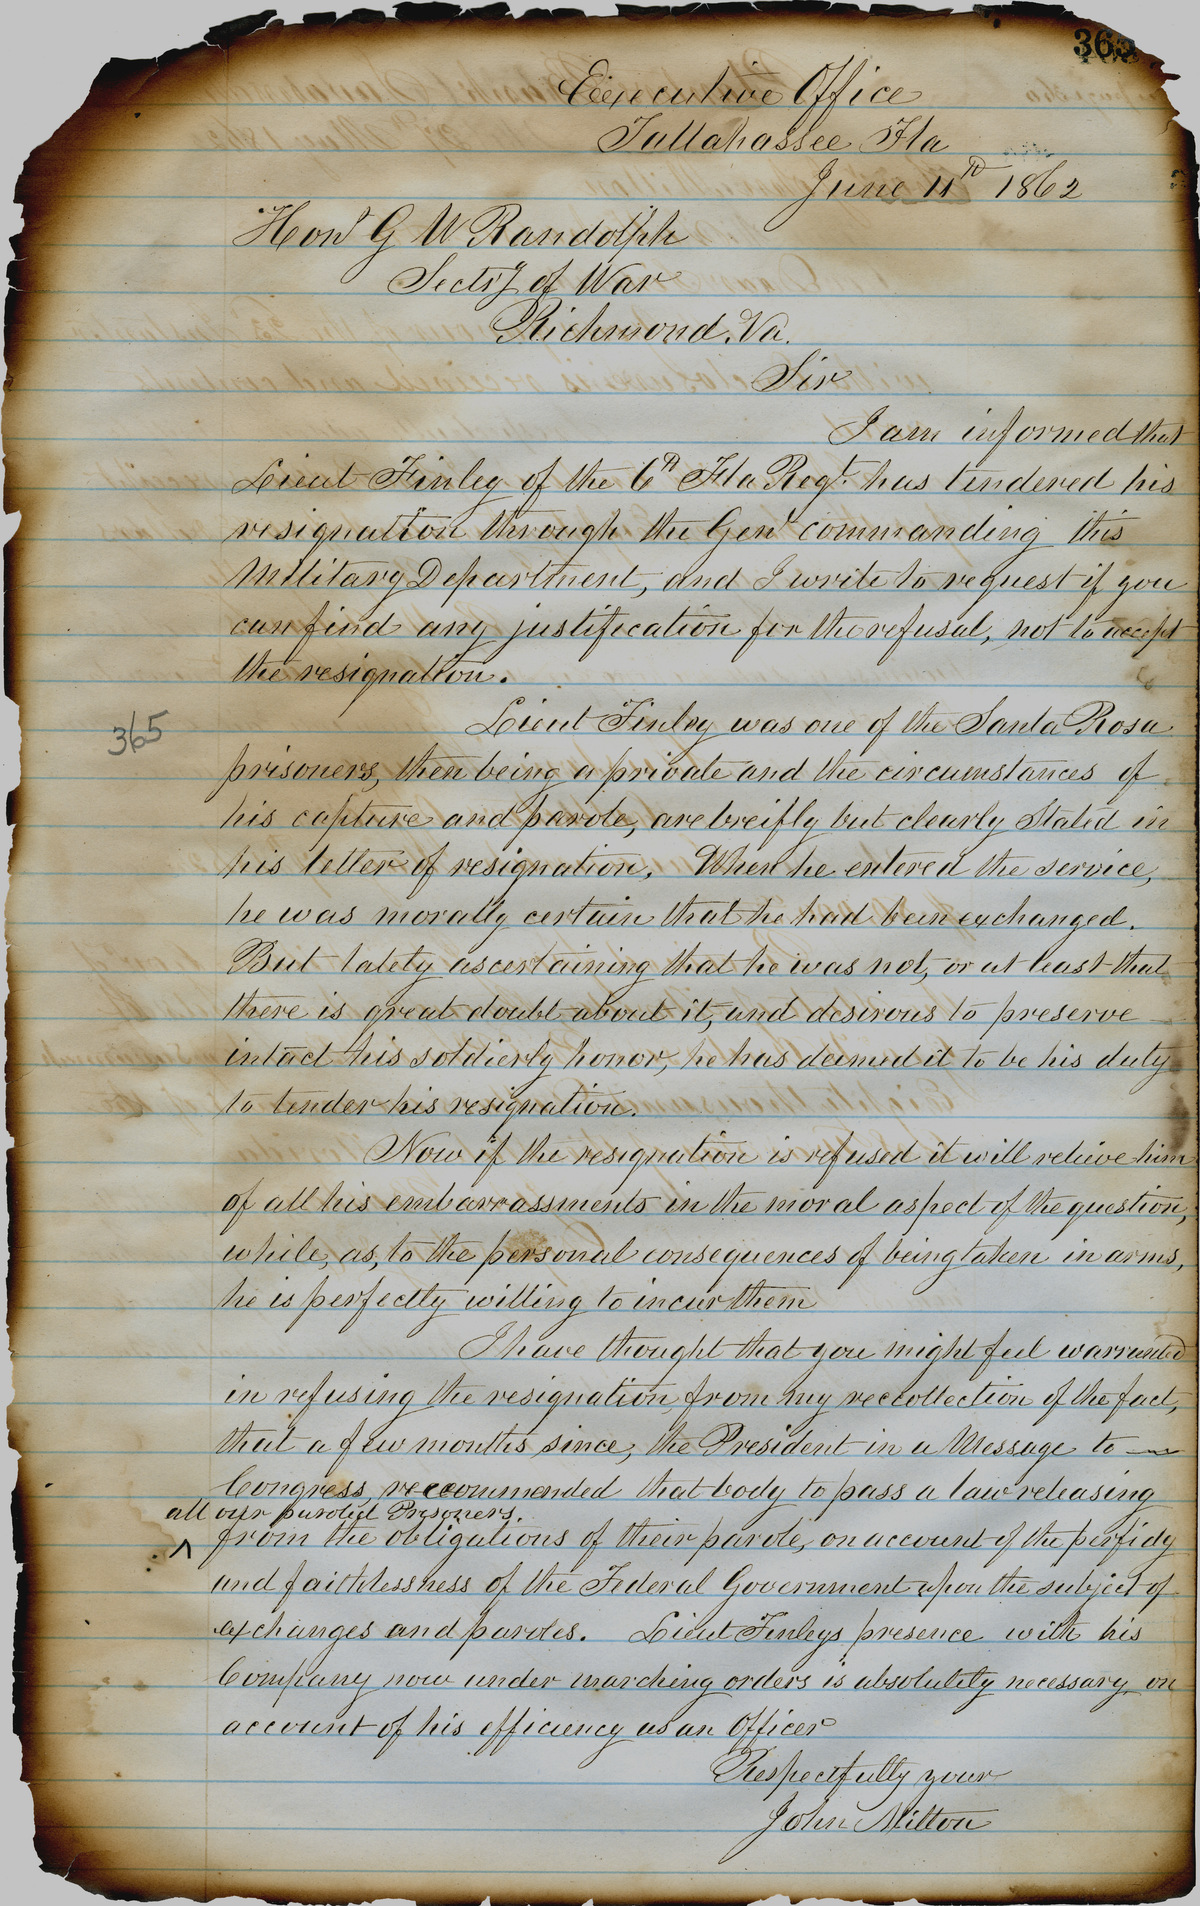 365
Executive Office
Tallahassee Fla
June 11th 1862
Honl G W Randolph
Secty of War
Richmond, Va.
Sir
I am informed that
Lieut Finley of the 6th Fla Regt. has tendered his
resignation through the Genl commanding this
Military Department, and I write to request if you
can find any justification for the refusal, not to accept
the resignation.
Lieut Finley was one of the Santa Rosa
365
prisoners, then being a private and the circumstances of
his capture and parole, are breifly but clearly Stated in
his letter of resignation. When he entered the service,
he was morally certain that he had been exchanged.
But lately ascertaining that he was not, or at least that
there is great doubt about it, and desirous to preserve
intact his soldierly honor, he has deemed it to be his duty
to tender his resignation.
Now if the resignation is refused it will relieve him
of all his embarrassments in the moral aspect of the question,
while, as, to the personal consequences of being taken in arms,
he is perfectly willing to incur them
I have thought that you might feel warranted
in refusing the resignation, from my reccollection of the fact,
that a few months since, the President in a Message to
Congress reccommended that body to pass a law releasing
all our paroled Prisoners
^ from the obligations of their parole, on account of the perfidy
and faithlessness of the Federal Government upon the subject of
exchanges and paroles. Lieut Finleys presence with his
Company now under marching orders is absolutely necessary, on
account of his efficiency as an Officer
Respectfully your
John Milton